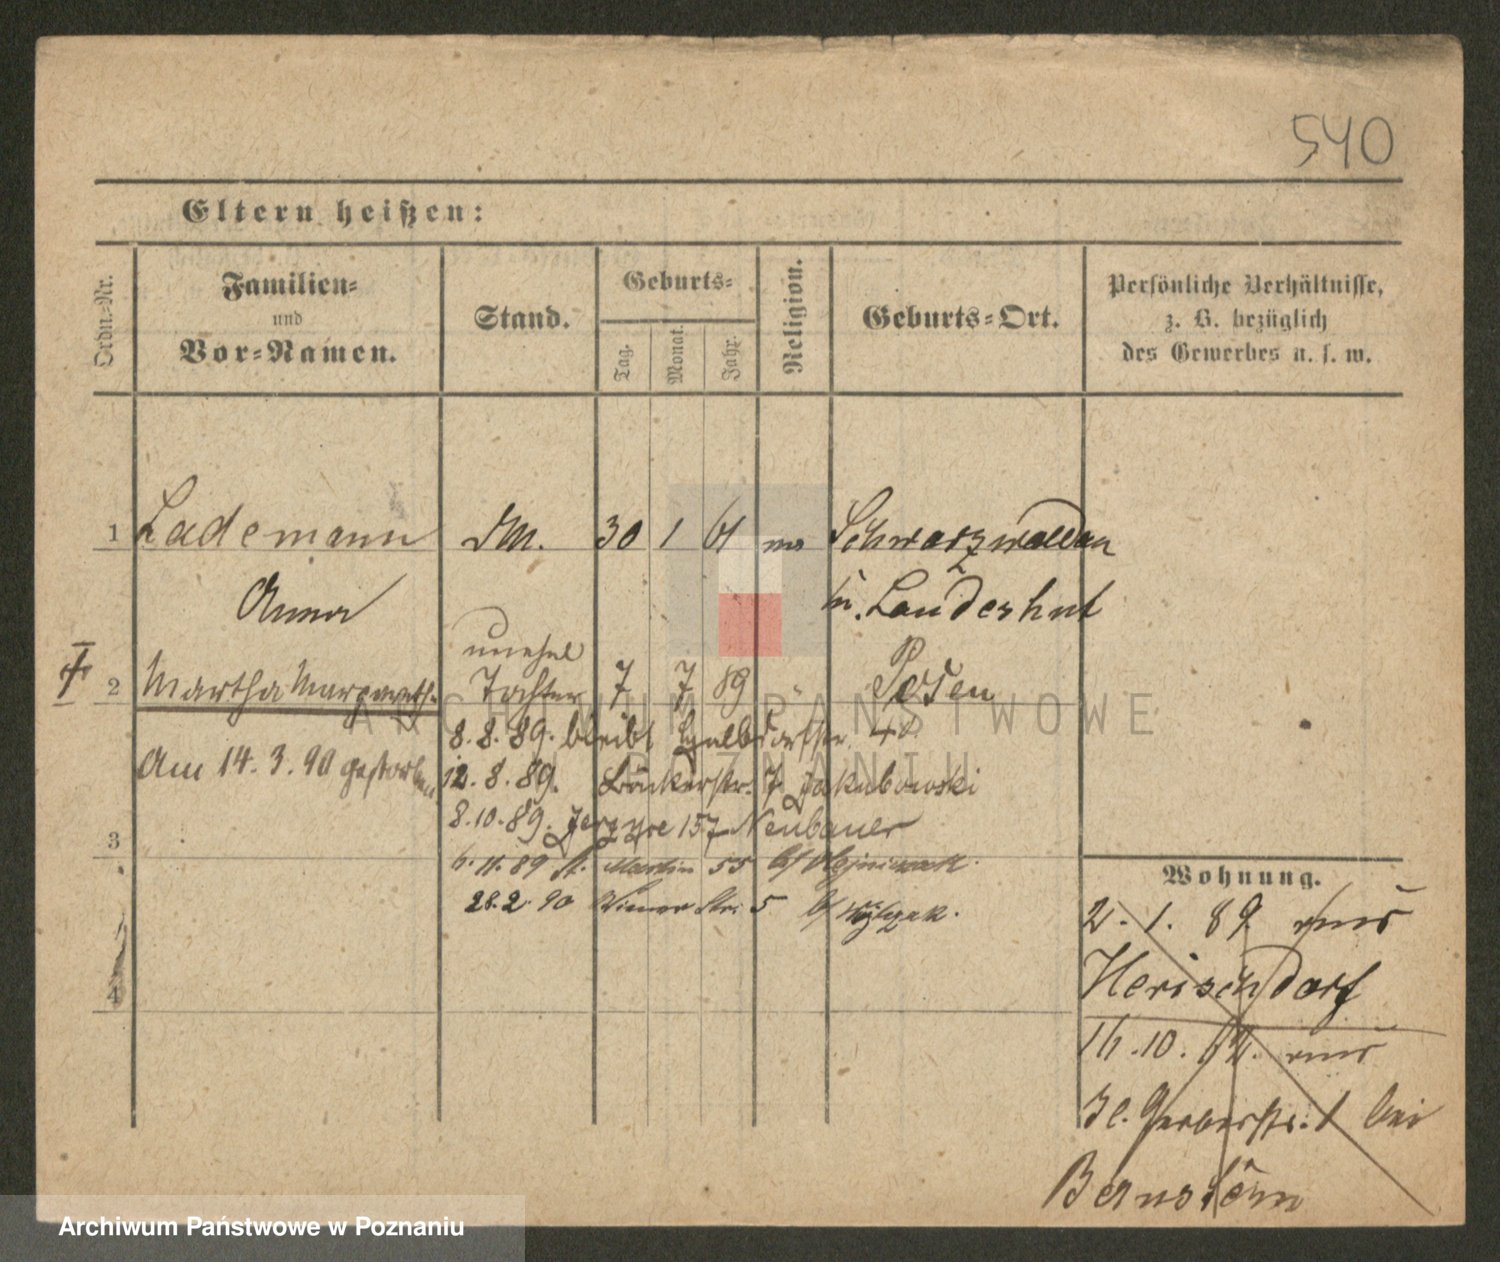 540
Eltern heißen:
Ordn.-Nr.
Familien-
und
Vor-Namen.
Stand.
Geburts-
Tag.
Monat.
Jahr.
Religion.
Geburts-Ort.
Persönliche Verhältnisse,
z. B. bezüglich
des Gewerbes u. s. w.
1 Lademann DM. 30 1 61 Schwarzwaldau
Anna n. Landeshut
unehel
2 Martha Margareth. Tochter 7 7 89 Posen
8. 8. 89. bleibt 40
Am 14. 3. 90 gestorben
12. 8. 89. Bäckerstr. 7 Jakubowski
8. 10. 89. Jerzyce 157 Neubauer
3
6. 11. 89 St. Martin 55 b/
28. 2. 90 Wiener Str. 5 b/
4
Wohnung.
2. 1. 89 aus
Herischdorf
16. 10. aus
Kl. Gerberstr. 1 bei
Bernstein
ARCHIWUM PAŃSTWOWE
W POZNANIU
Archiwum Państwowe w Poznaniu